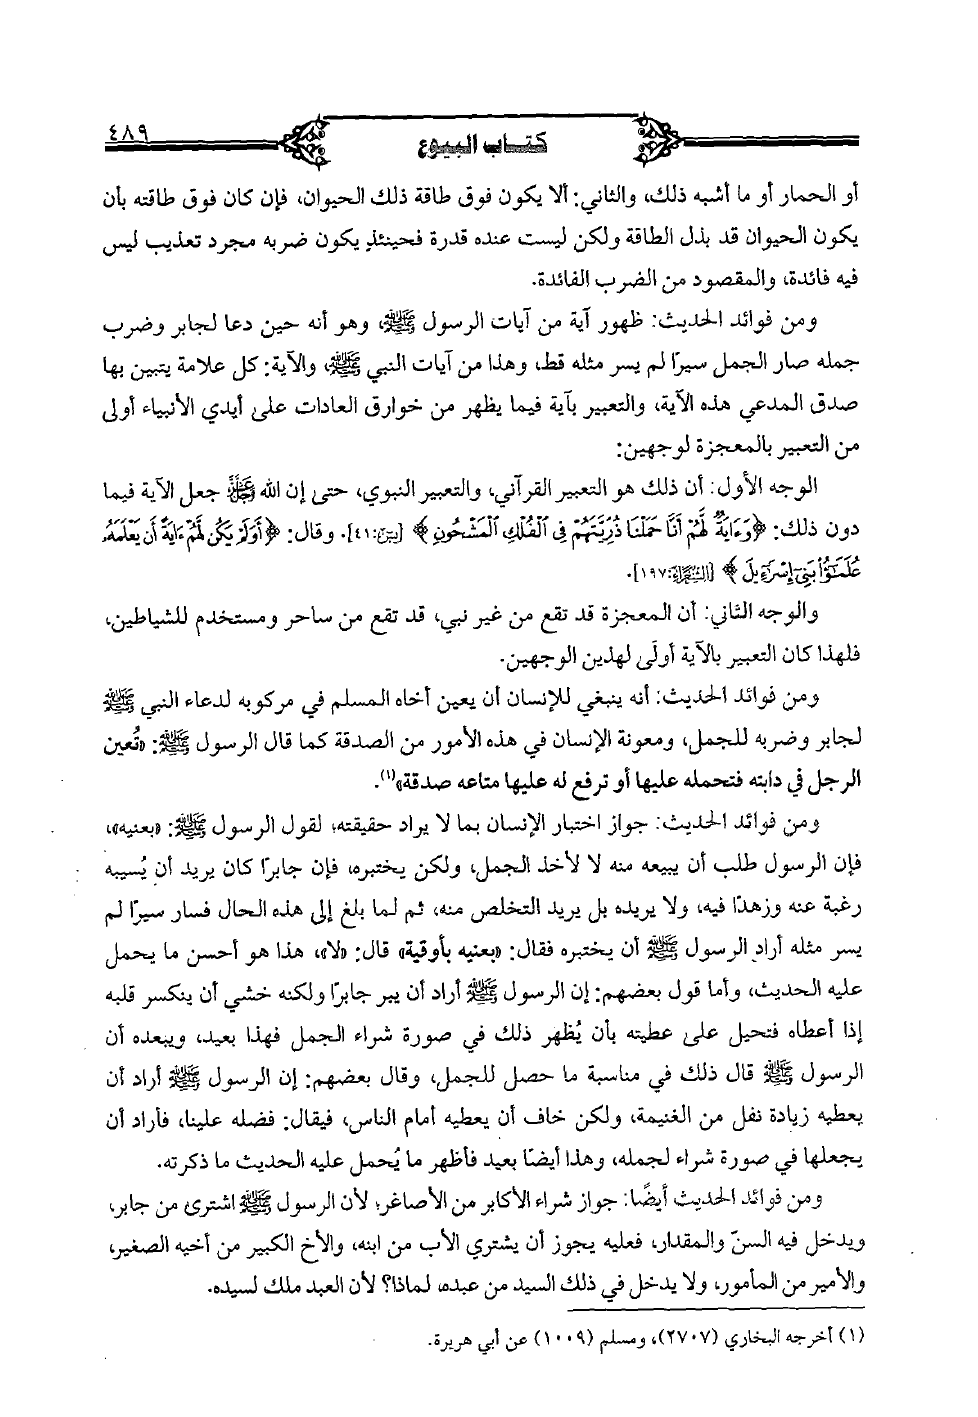 ٤٨٩
كتاب البيوع
أو الحمار أو ما أشبه ذلك، والثاني: ألا يكون فوق طاقة ذلك الحيوان، فإن كان فوق طاقته بأن
يكون الحيوان قد بذل الطاقة ولكن ليست عنده قدرة فحينئذٍ يكون ضربه مجرد تعذيب ليس
فيه فائدة، والمقصود من الضرب الفائدة.
ومن فوائد الحديث: ظهور آية من آيات الرسول ﷺ، وهو أنه حين دعا لجابر وضرب
جمله صار الجمل سيرًا لم يسر مثله قط، وهذا من آيات النبي ﷺ، والآية: كل علامة يتبين بها
صدق المدعي هذه الآية، والتعبير بآية فيما يظهر من خوارق العادات على أيدي الأنبياء أولى
من التعبير بالمعجزة لوجهين:
الوجه الأول: أن ذلك هو التعبير القرآني، والتعبير النبوي، حتى إن الله ﷻ جعل الآية فيما
دون ذلك: ﴿وَءَايَةٌ لَّهُمْ أَنَّا حَمَلْنَا ذُرِّيَّتَهُمْ فِي ٱلْفُلْكِ ٱلْمَشْحُونِ﴾ [يس:٤١]. وقال: ﴿أَوَلَمْ يَكُن لَّهُمْ ءَايَةً أَن يَعْلَمَهُۥ
عُلَمَٰٓؤُا۟ بَنِىٓ إِسْرَٰٓءِيلَ﴾ [الشعراء:١٩٧].
والوجه الثاني: أن المعجزة قد تقع من غير نبي، قد تقع من ساحر ومستخدم للشياطين،
فلهذا كان التعبير بالآية أولَى لهذين الوجهين.
ومن فوائد الحديث: أنه ينبغي للإنسان أن يعين أخاه المسلم في مركوبه لدعاء النبي ﷺ
لجابر وضربه للجمل، ومعونة الإنسان في هذه الأمور من الصدقة كما قال الرسول ﷺ: «تُعين
الرجل في دابته فتحمله عليها أو ترفع له عليها متاعه صدقة»(١).
ومن فوائد الحديث: جواز اختبار الإنسان بما لا يراد حقيقته؛ لقول الرسول ﷺ: «بعنيه»،
فإن الرسول طلب أن يبيعه منه لا لأخذ الجمل، ولكن يختبره، فإن جابرًا كان يريد أن يُسيبه
رغبة عنه وزهدًا فيه، ولا يريده بل يريد التخلص منه، ثم لما بلغ إلى هذه الحال فسار سيرًا لم
يسر مثله أراد الرسول ﷺ أن يختبره فقال: «بعنيه بأوقية» قال: «لا»، هذا هو أحسن ما يحمل
عليه الحديث، وأما قول بعضهم: إن الرسول ﷺ أراد أن يبر جابرًا ولكنه خشي أن ينكسر قلبه
إذا أعطاه فتحيل على عطيته بأن يُظهر ذلك في صورة شراء الجمل فهذا بعيد، ويبعده أن
الرسول ﷺ قال ذلك في مناسبة ما حصل للجمل، وقال بعضهم: إن الرسول ﷺ أراد أن
يعطيه زيادة نفل من الغنيمة، ولكن خاف أن يعطيه أمام الناس، فيقال: فضله علينا، فأراد أن
يجعلها في صورة شراء لجمله، وهذا أيضًا بعيد فأظهر ما يُحمل عليه الحديث ما ذكرته.
ومن فوائد الحديث أيضًا: جواز شراء الأكابر من الأصاغر؛ لأن الرسول ﷺ اشترى من جابر،
ويدخل فيه السنّ والمقدار، فعليه يجوز أن يشتري الأب من ابنه، والأخ الكبير من أخيه الصغير،
والأمير من المأمور، ولا يدخل في ذلك السيد من عبده، لماذا؟ لأن العبد ملك لسيده.
(١) أخرجه البخاري (٢٧٠٧)، ومسلم (١٠٠٩) عن أبي هريرة.